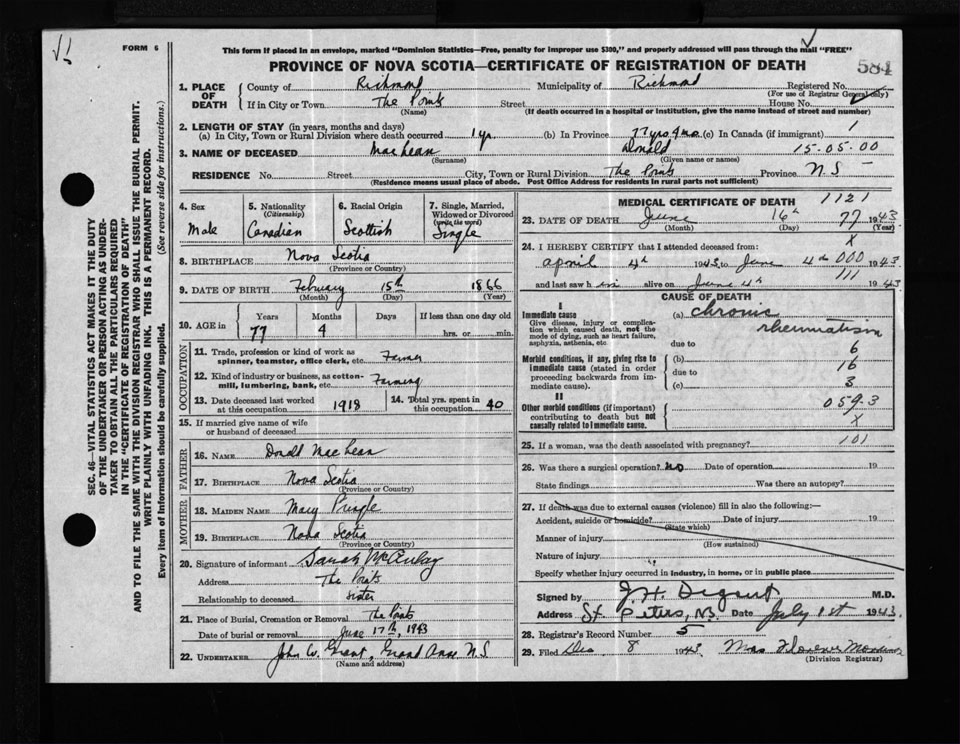 FORM 6
This form if placed in an envelope, marked "Dominion Statistics—Free, penalty for improper use $300," and properly addressed will pass through the mail "FREE"
PROVINCE OF NOVA SCOTIA—CERTIFICATE OF REGISTRATION OF DEATH
584
1. PLACE OF DEATH
County of Richmond Municipality of Richmond Registered No.
(For use of Registrar General only)
If in City or Town The Points Street House No.
(Name) (If death occurred in a hospital or institution, give the name instead of street and number)
2. LENGTH OF STAY (in years, months and days)
(a) In City, Town or Rural Division where death occurred 1 yr. (b) In Province 77 yrs 4 mo. (c) In Canada (if immigrant) 1
3. NAME OF DECEASED MacLean Donald 15-05-00
(Surname) (Given name or names)
RESIDENCE No. Street City, Town or Rural Division The Points Province N.S. —
(Residence means usual place of abode. Post Office Address for residents in rural parts not sufficient)
4. Sex
Male
5. Nationality
(Citizenship)
Canadian
6. Racial Origin
Scottish
7. Single, Married, Widowed or Divorced
(write the word)
Single
8. BIRTHPLACE Nova Scotia
(Province or Country)
9. DATE OF BIRTH February 15th 1866
(Month) (Day) (Year)
10. AGE in Years Months Days If less than one day old
77 4 hrs. or min.
OCCUPATION
11. Trade, profession or kind of work as spinner, teamster, office clerk, etc. Farmer
12. Kind of industry or business, as cotton-mill, lumbering, bank, etc. Farming
13. Date deceased last worked at this occupation 1918
14. Total yrs. spent in this occupation 40
15. If married give name of wife or husband of deceased
FATHER
16. NAME Donald MacLean
17. BIRTHPLACE Nova Scotia
(Province or Country)
MOTHER
18. MAIDEN NAME Mary Pringle
19. BIRTHPLACE Nova Scotia
(Province or Country)
20. Signature of informant Sarah
Address The Points
Relationship to deceased sister
21. Place of Burial, Cremation or Removal The Points
Date of burial or removal June 17th, 1943
22. UNDERTAKER John W. Grant, Grand Anse N.S.
(Name and address)
MEDICAL CERTIFICATE OF DEATH 1121
23. DATE OF DEATH June 16th 77 1943
(Month) (Day) (Year)
24. I HEREBY CERTIFY that I attended deceased from: X
April 4th 1943 to June 4th 000 1943
111
and last saw him alive on June 4th 1943
CAUSE OF DEATH
I
Immediate cause
Give disease, injury or complication which caused death, not the mode of dying, such as heart failure, asphyxia, asthenia, etc.
(a) chronic rheumatism
due to 6
Morbid conditions, if any, giving rise to immediate cause (stated in order proceeding backwards from immediate cause).
(b) 16
due to
(c) 3
II
Other morbid conditions (if important) contributing to death but not causally related to immediate cause.
059.3
X
25. If a woman, was the death associated with pregnancy? 101
26. Was there a surgical operation? no Date of operation 19
State findings Was there an autopsy?
27. If death was due to external causes (violence) fill in also the following:—
Accident, suicide or homicide? Date of injury 19
(State which)
Manner of injury
(How sustained)
Nature of injury
Specify whether injury occurred in industry, in home, or in public place
Signed by M.D.
Address St. Peters, N.S. Date July 1st 1943
28. Registrar's Record Number 5
29. Filed Dec 8 1943 Mrs Florence
(Division Registrar)
SEC. 46—VITAL STATISTICS ACT MAKES IT THE DUTY
OF THE UNDERTAKER OR PERSON ACTING AS UNDER-
TAKER TO OBTAIN ALL THE PARTICULARS REQUIRED
IN THE "CERTIFICATE OF REGISTRATION OF DEATH"
AND TO FILE THE SAME WITH THE DIVISION REGISTRAR WHO SHALL ISSUE THE BURIAL PERMIT.
WRITE PLAINLY WITH UNFADING INK. THIS IS A PERMANENT RECORD.
Every item of Information should be carefully supplied. (See reverse side for instructions.)